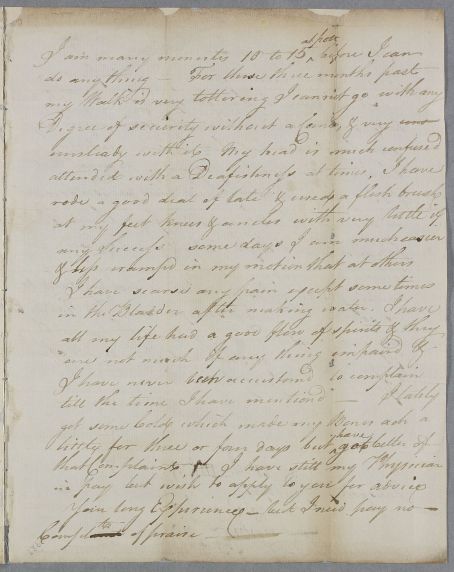 at pott
I am many minutes 10 to 15 ^ before I can
do any thing — For these three months past
my Walk is very tottering I cannot go with any
Degree of security without a Cane & very
unstiably with it. My head is much confused
attended with a Deafishness at times, I have
rode a good deal of late & used a flesh brush
at my feet knees & ancles with very little if
any success some days I am much easier
& less cramped in my motion than at others
I have scarse any pain except sometimes
in the Bladder after making water. I have
all my life had a good flow of spirits & they
are not much if any thing impaird &
I have never been accustomd to complain
till the time I have mentiond — I lately
got some Cold which made my Bones ach a
little for three or four days but have got better of
that complaint I have still my Physician
in pay but wish to apply to you for advice
Your long Experience — but I need pay no —
Compliments of praise —